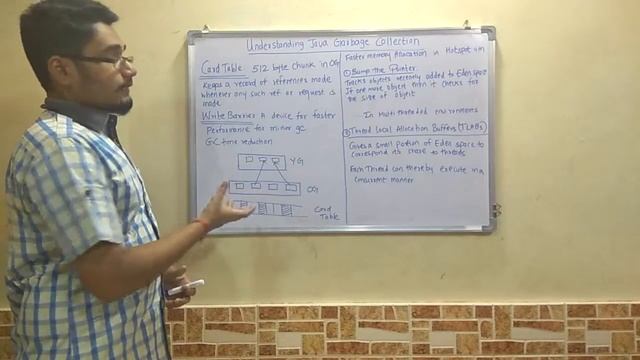 Understanding Java Garbage Collection
Card Table: 512 byte chunk in OG
Keeps a record of references made
whenever any such ref or request is
made
Write Barrier A device for faster
Performance for minor gc
GC time reduction
YG
OG
Card
Table
Faster memory Allocation in Hotspot vm
① Bump the Pointer
Tracks objects recently added to Eden space
If one more object enter it checks for
the size of object
In Multithreaded environments
② Thread Local Allocation Buffers (TLABs)
Gives a small portion of Eden space to
correspond its share to threads
Each Thread can thereby execute in a
concurrent manner